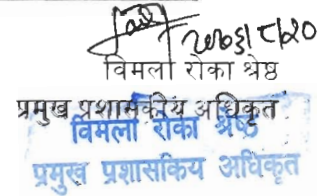 २०७३।८।२०
विमला रोका श्रेष्ठ
प्रमुख प्रशासकीय अधिकृत
विमला रोका श्रेष्ठ
प्रमुख प्रशासकिय अधिकृत